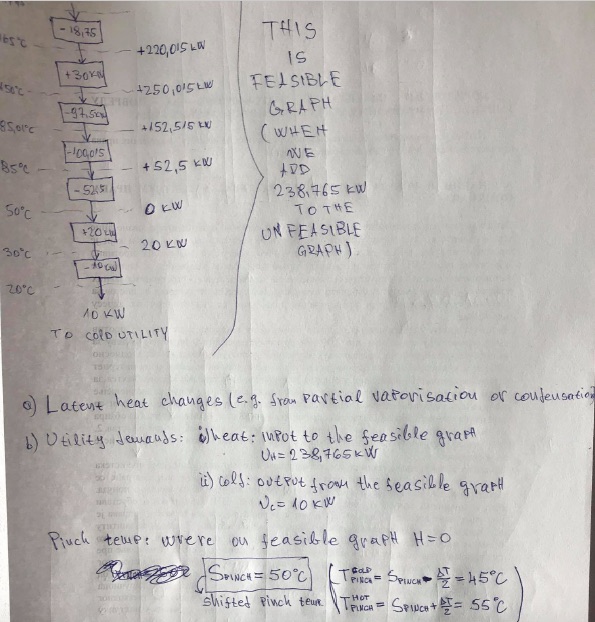 - 18,75
165°C
+220,015 kW
+30kW
150°C
+250,015 kW
-97,5kW
85,01°C
+152,515 kW
-100,015
85°C
+52,5 kW
-52,5
50°C
0 KW
+20 kW
20 KW
30°C
-10kW
20°C
10 KW
TO COLD UTILITY
THIS
IS
FEASIBLE
GRAPH
(WHEN
WE
ADD
238,765 KW
TO THE
UNFEASIBLE
GRAPH)
a) Latent heat changes (e.g. from partial vaporisation or condensation)
b) Utility demands: i) heat: input to the feasible graph
UH=238,765KW
ii) cold: output from the feasible graph
Uc= 10 KW
Pinch temp: where on feasible graph H=0
SPINCH = 50°C
shifted pinch temp.
(TPINCH COLD = SPINCH - ΔT/2 = 45°C
TPINCH HOT = SPINCH + ΔT/2 = 55°C)